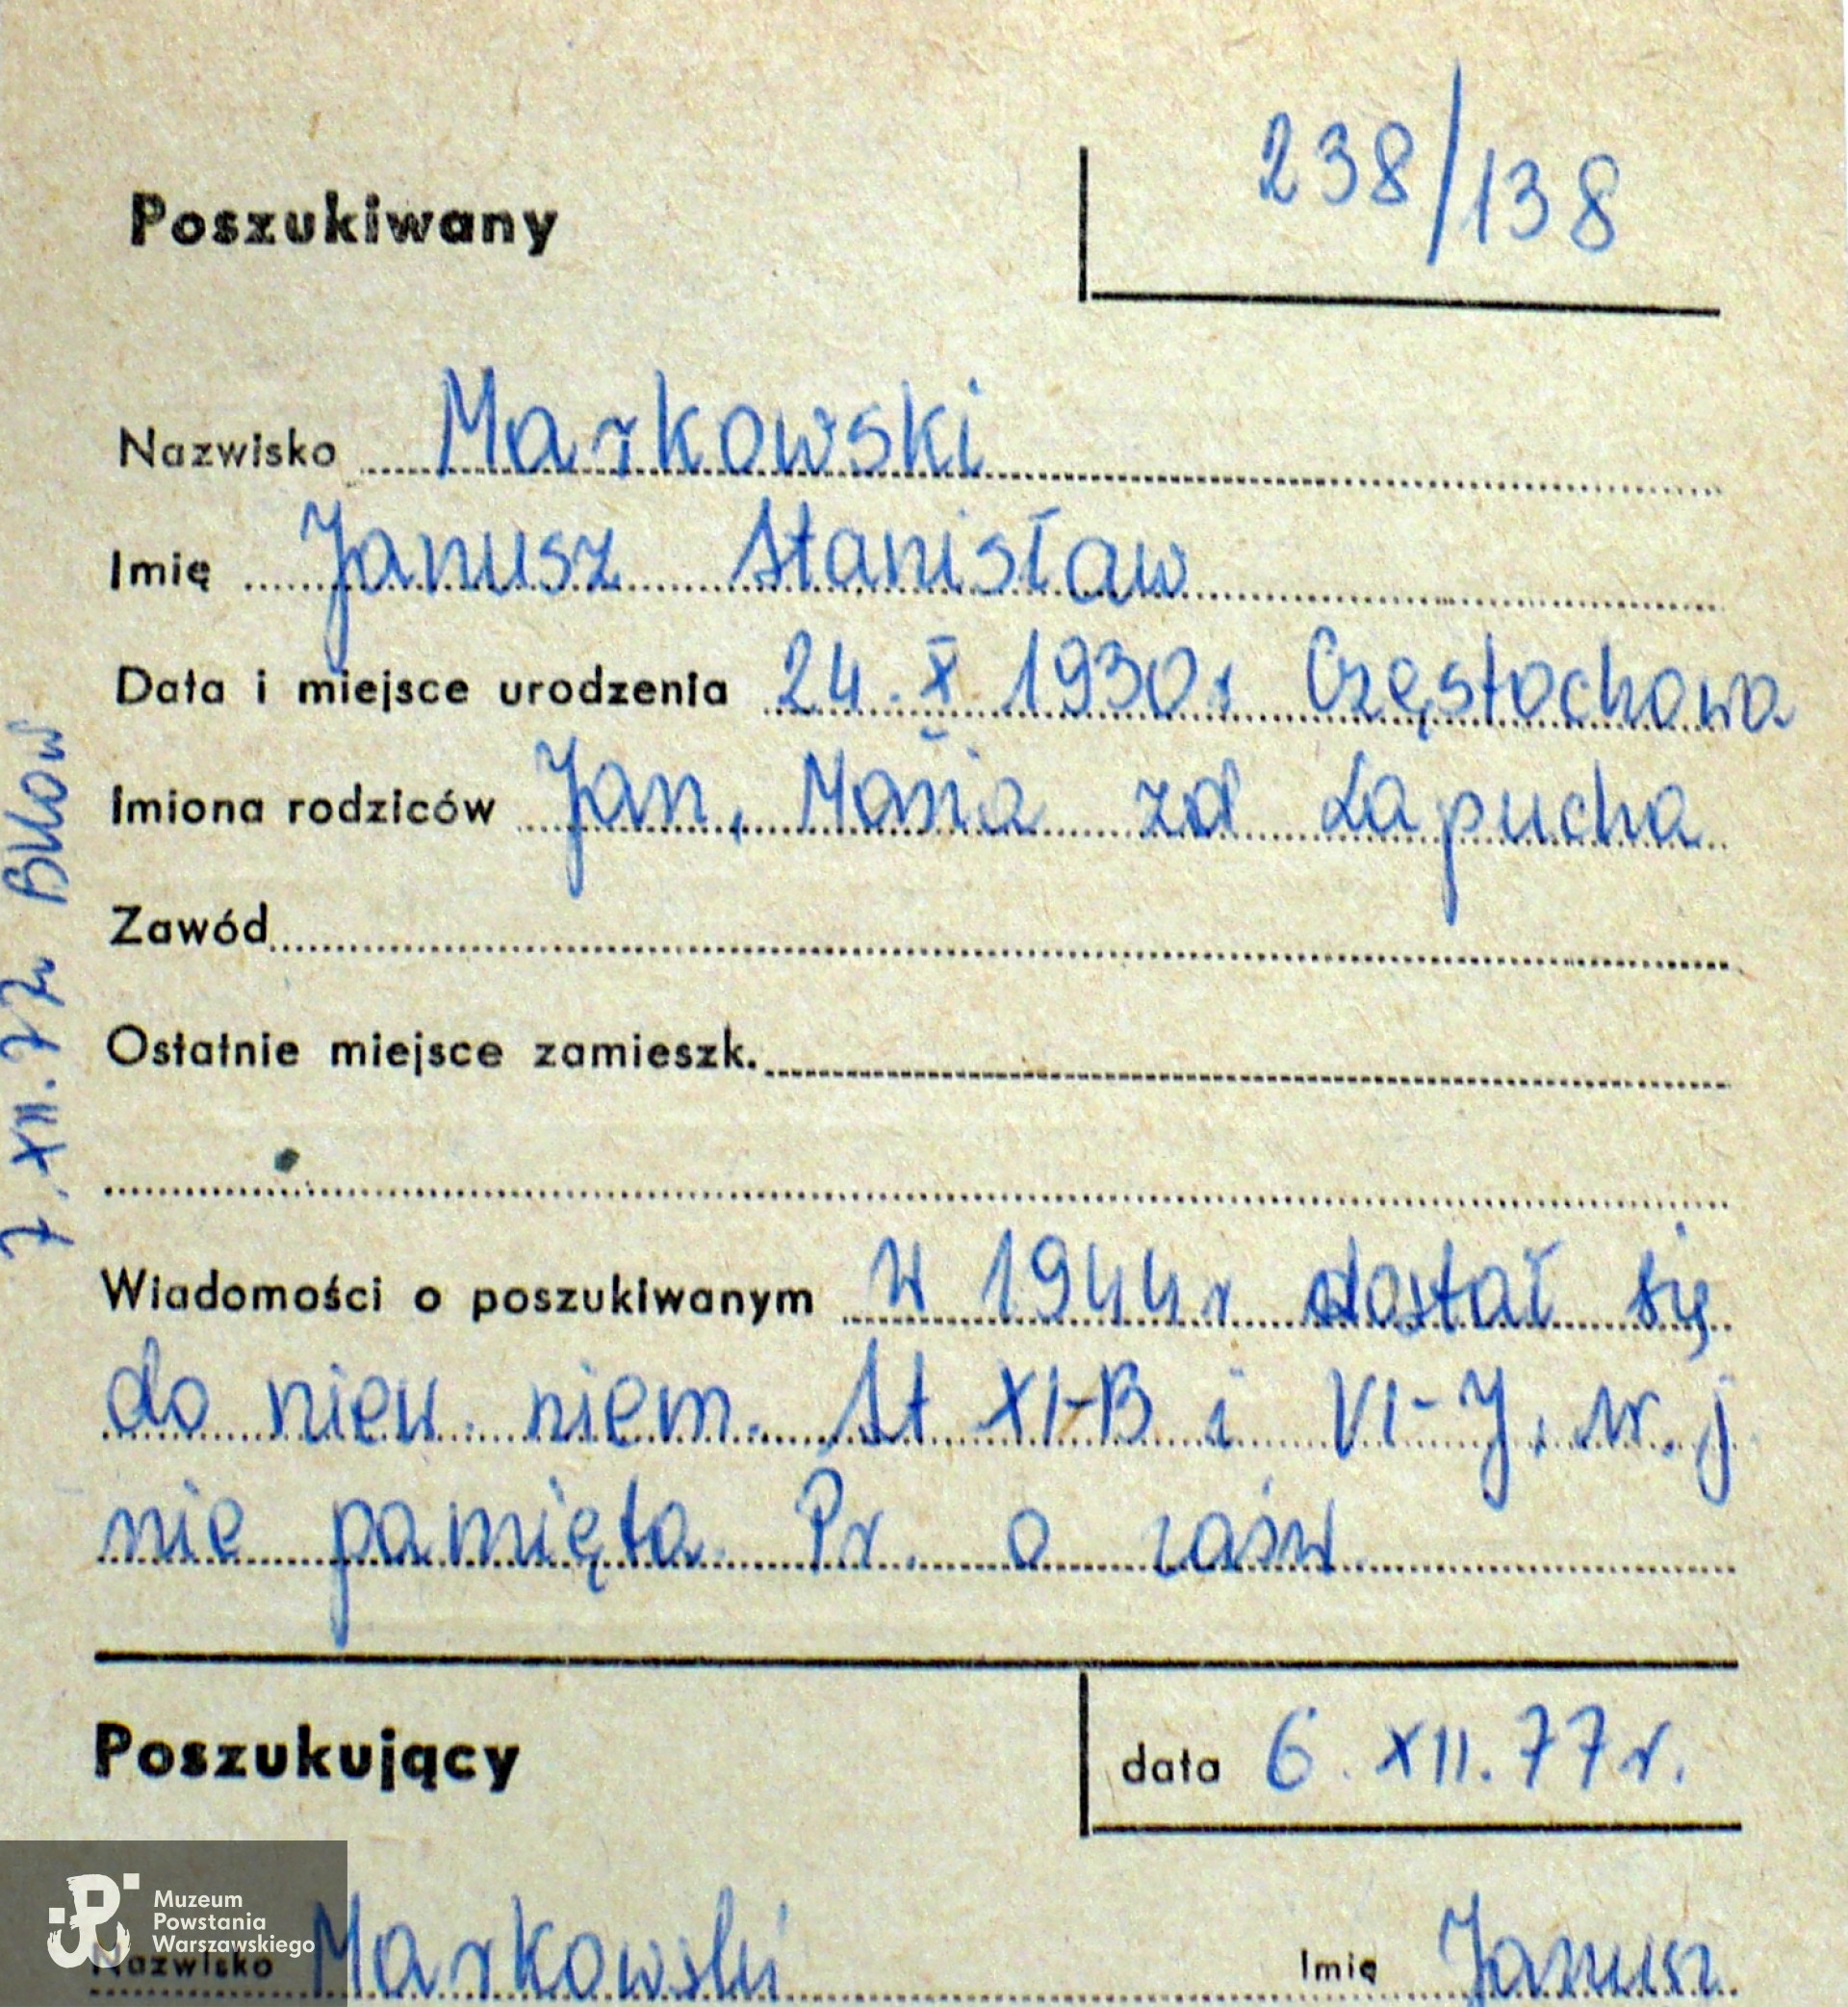 Poszukiwany
238/138
Nazwisko Markowski
Imię Janusz Stanisław
Data i miejsce urodzenia 24.X.1930r Częstochowa
Imiona rodziców Jan, Maria zd Łapucha
Zawód
Ostatnie miejsce zamieszk.
Wiadomości o poszukiwanym W 1944r dostał się
do niew. niem. St XI-B i VI-J, nr. j
nie pamięta. Pr. o zaśw.
7.XII.77r
Poszukujący
data 6.XII.77r.
Nazwisko Markowski Imię Janusz
Muzeum
Powstania
Warszawskiego